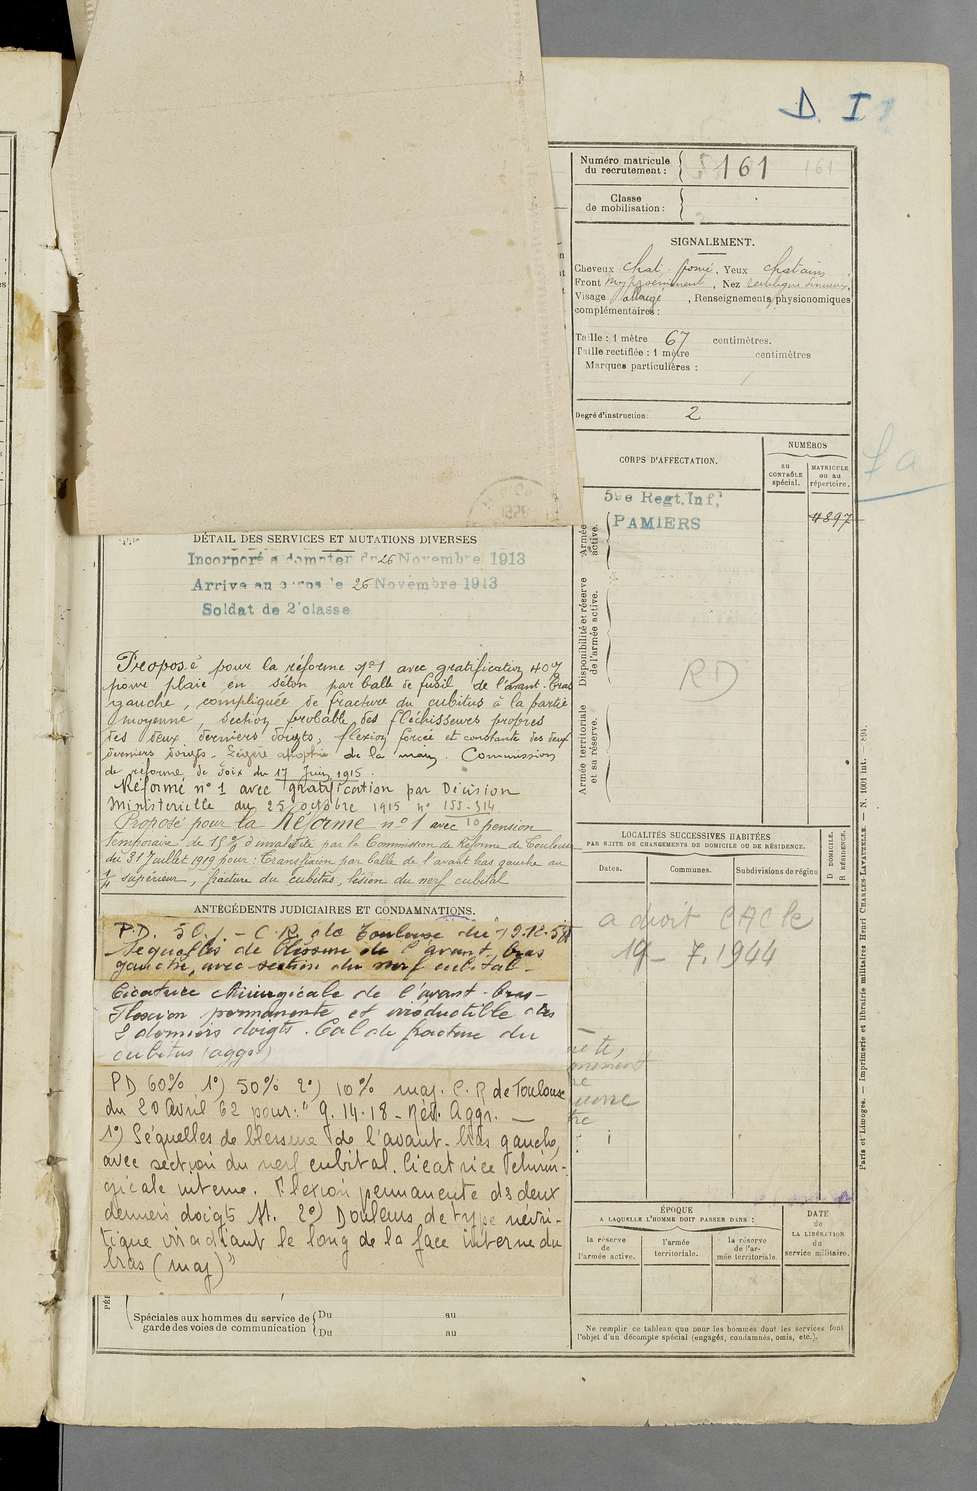 D. I
Numéro matricule
du recrutement :
161
161
Classe
de mobilisation :
SIGNALEMENT.
Cheveux chat. foncé, Yeux chatains
Front Moy proéminent, Nez rectiligne sinueux,
Visage allongé, Renseignements physionomiques
complémentaires :
Taille : 1 mètre 67 centimètres.
Taille rectifiée : 1 mètre centimètres
Marques particulières :
Degré d'instruction : 2
CORPS D'AFFECTATION.
NUMÉROS
au
CONTRÔLE
spécial.
MATRICULE
ou au
répertoire.
Armée
active.
59e Regt. Inf.
PAMIERS
4897
Disponibilité et réserve
de l'armée active.
RD
Armée territoriale
et sa réserve.
LOCALITÉS SUCCESSIVES HABITÉES
PAR SUITE DE CHANGEMENTS DE DOMICILE OU DE RÉSIDENCE.
Dates.
Communes.
Subdivisions de région
D DOMICILE.
R RÉSIDENCE.
a droit CAC le
19 - 7. 1944
ÉPOQUE
A LAQUELLE L'HOMME DOIT PASSER DANS :
la réserve
de
l'armée active.
l'armée
territoriale.
la réserve
de l'ar-
mée territoriale.
DATE
de
LA LIBÉRATION
du
service militaire.
Ne remplir ce tableau que pour les hommes dont les services font
l'objet d'un décompte spécial (engagés, condamnés, omis, etc.).
Paris et Limoges. — Imprimerie et librairie militaires Henri CHARLES-LAVAUZELLE. — N. 1001 int. - 894.
DÉTAIL DES SERVICES ET MUTATIONS DIVERSES
Incorporé à compter du 26 Novembre 1913
Arrivé au corps le 26 Novembre 1913
Soldat de 2e classe
Proposé pour la réforme n°1 avec gratification 40%
pour plaie en séton par balle de fusil de l'avant-bras
gauche, compliquée de fracture du cubitus à la partie
moyenne, section probable des fléchisseurs propres
des deux derniers doigts, flexion forcée et constante des deux
derniers doigts - Légère atrophie de la main. Commission
de réforme de Foix du 17 Juin 1915.
Réformé n° 1 avec gratification par Décision
Ministérielle du 25 octobre 1915 n° 155-314
Proposé pour la Réforme n° 1 avec pension
temporaire de 15% d'invalidité par la Commission de Réforme de Toulouse
du 31 Juillet 1919 pour : Transfixion par balle de l'avant bras gauche au
1/4 supérieur, fracture du cubitus, lésion du nerf cubital
ANTÉCÉDENTS JUDICIAIRES ET CONDAMNATIONS.
P.D. 50./. - C.R. de Toulouse du
Séquelles de blessure de l'avant-bras
gauche, avec section du nerf cubital -
Cicatrice chirurgicale de l'avant-bras -
Flexion permanente et irréductible des
2 derniers doigts. Cal de fracture du
cubitus (aggr.)
PD 60% 1°) 50% 2°) 10% maj. C.R de Toulouse
du 20 Avril 62 pour : " g. 14.18 - Rév. Aggr. -
1°) Séquelles de blessure de l'avant-bras gauche,
avec section du nerf cubital. Cicatrice chirur-
gicale interne. Flexion permanente ds deux
derniers doigts St. 2°) Douleurs de type névri-
tique irradiant le long de la face interne du
bras (maj) "
Spéciales aux hommes du service de
garde des voies de communication
Du au
Du au